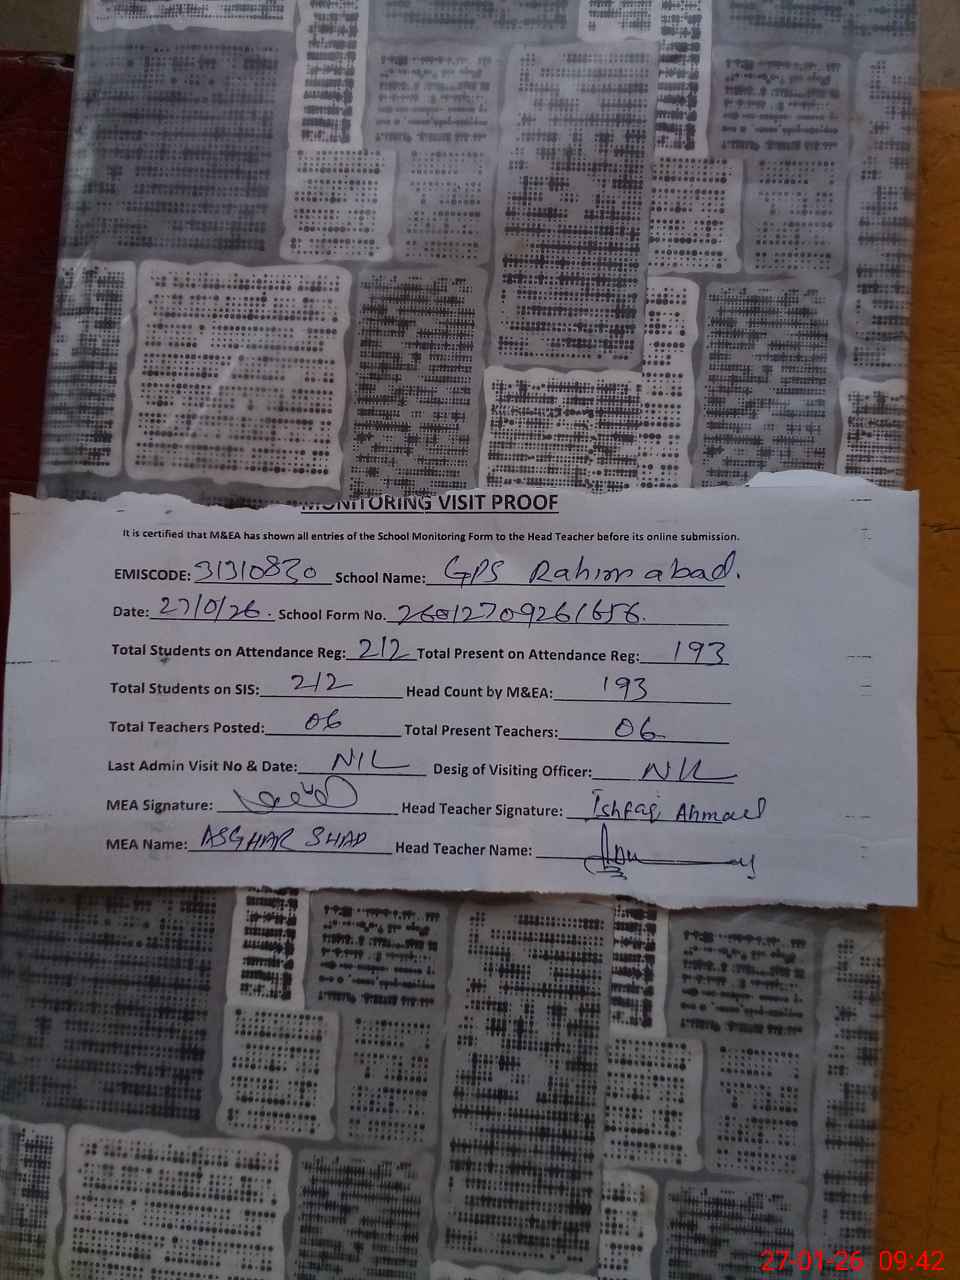 MONITORING VISIT PROOF
It is certified that M&EA has shown all entries of the School Monitoring Form to the Head Teacher before its online submission.
EMISCODE: 31310830 School Name: GPS Rahimabad.
Date: 27/0/26. School Form No. 26012709261656.
Total Students on Attendance Reg: 212 Total Present on Attendance Reg: 193
Total Students on SIS: 212 Head Count by M&EA: 193
Total Teachers Posted: 06 Total Present Teachers: 06
Last Admin Visit No & Date: NIL Desig of Visiting Officer: NIL
MEA Signature: Head Teacher Signature: Ishfaq Ahmad
MEA Name: ASGHAR SHAD Head Teacher Name:
27-01-26 09:42